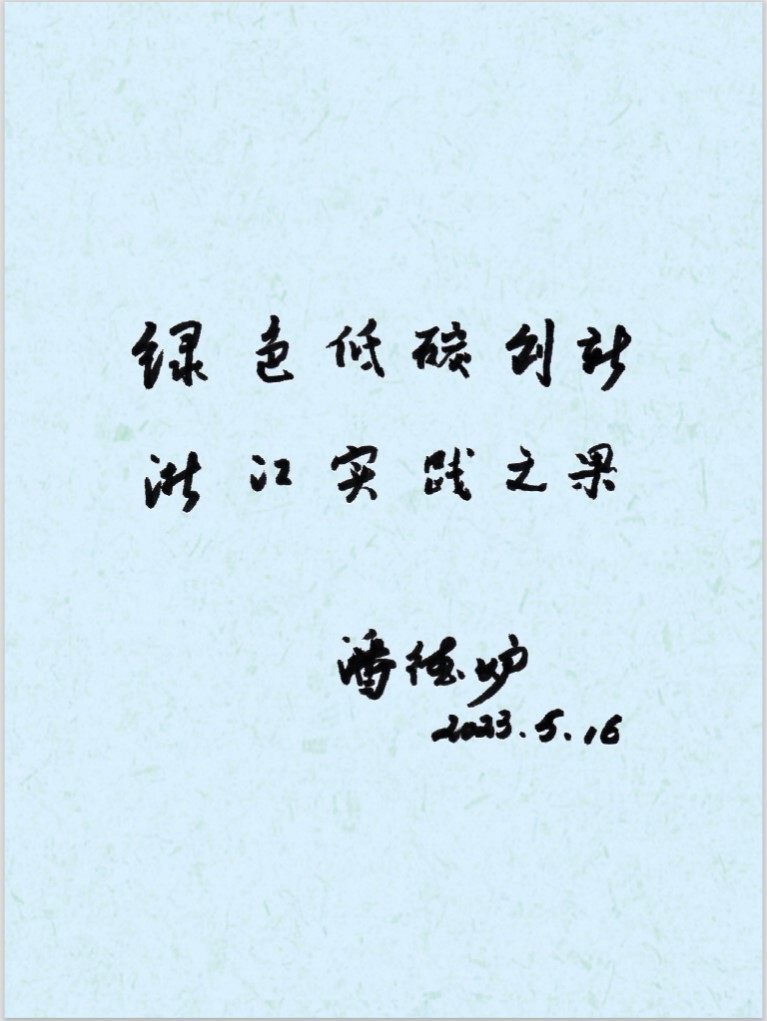 绿色低碳创新
浙江实践之果
潘德炉
2023.5.16